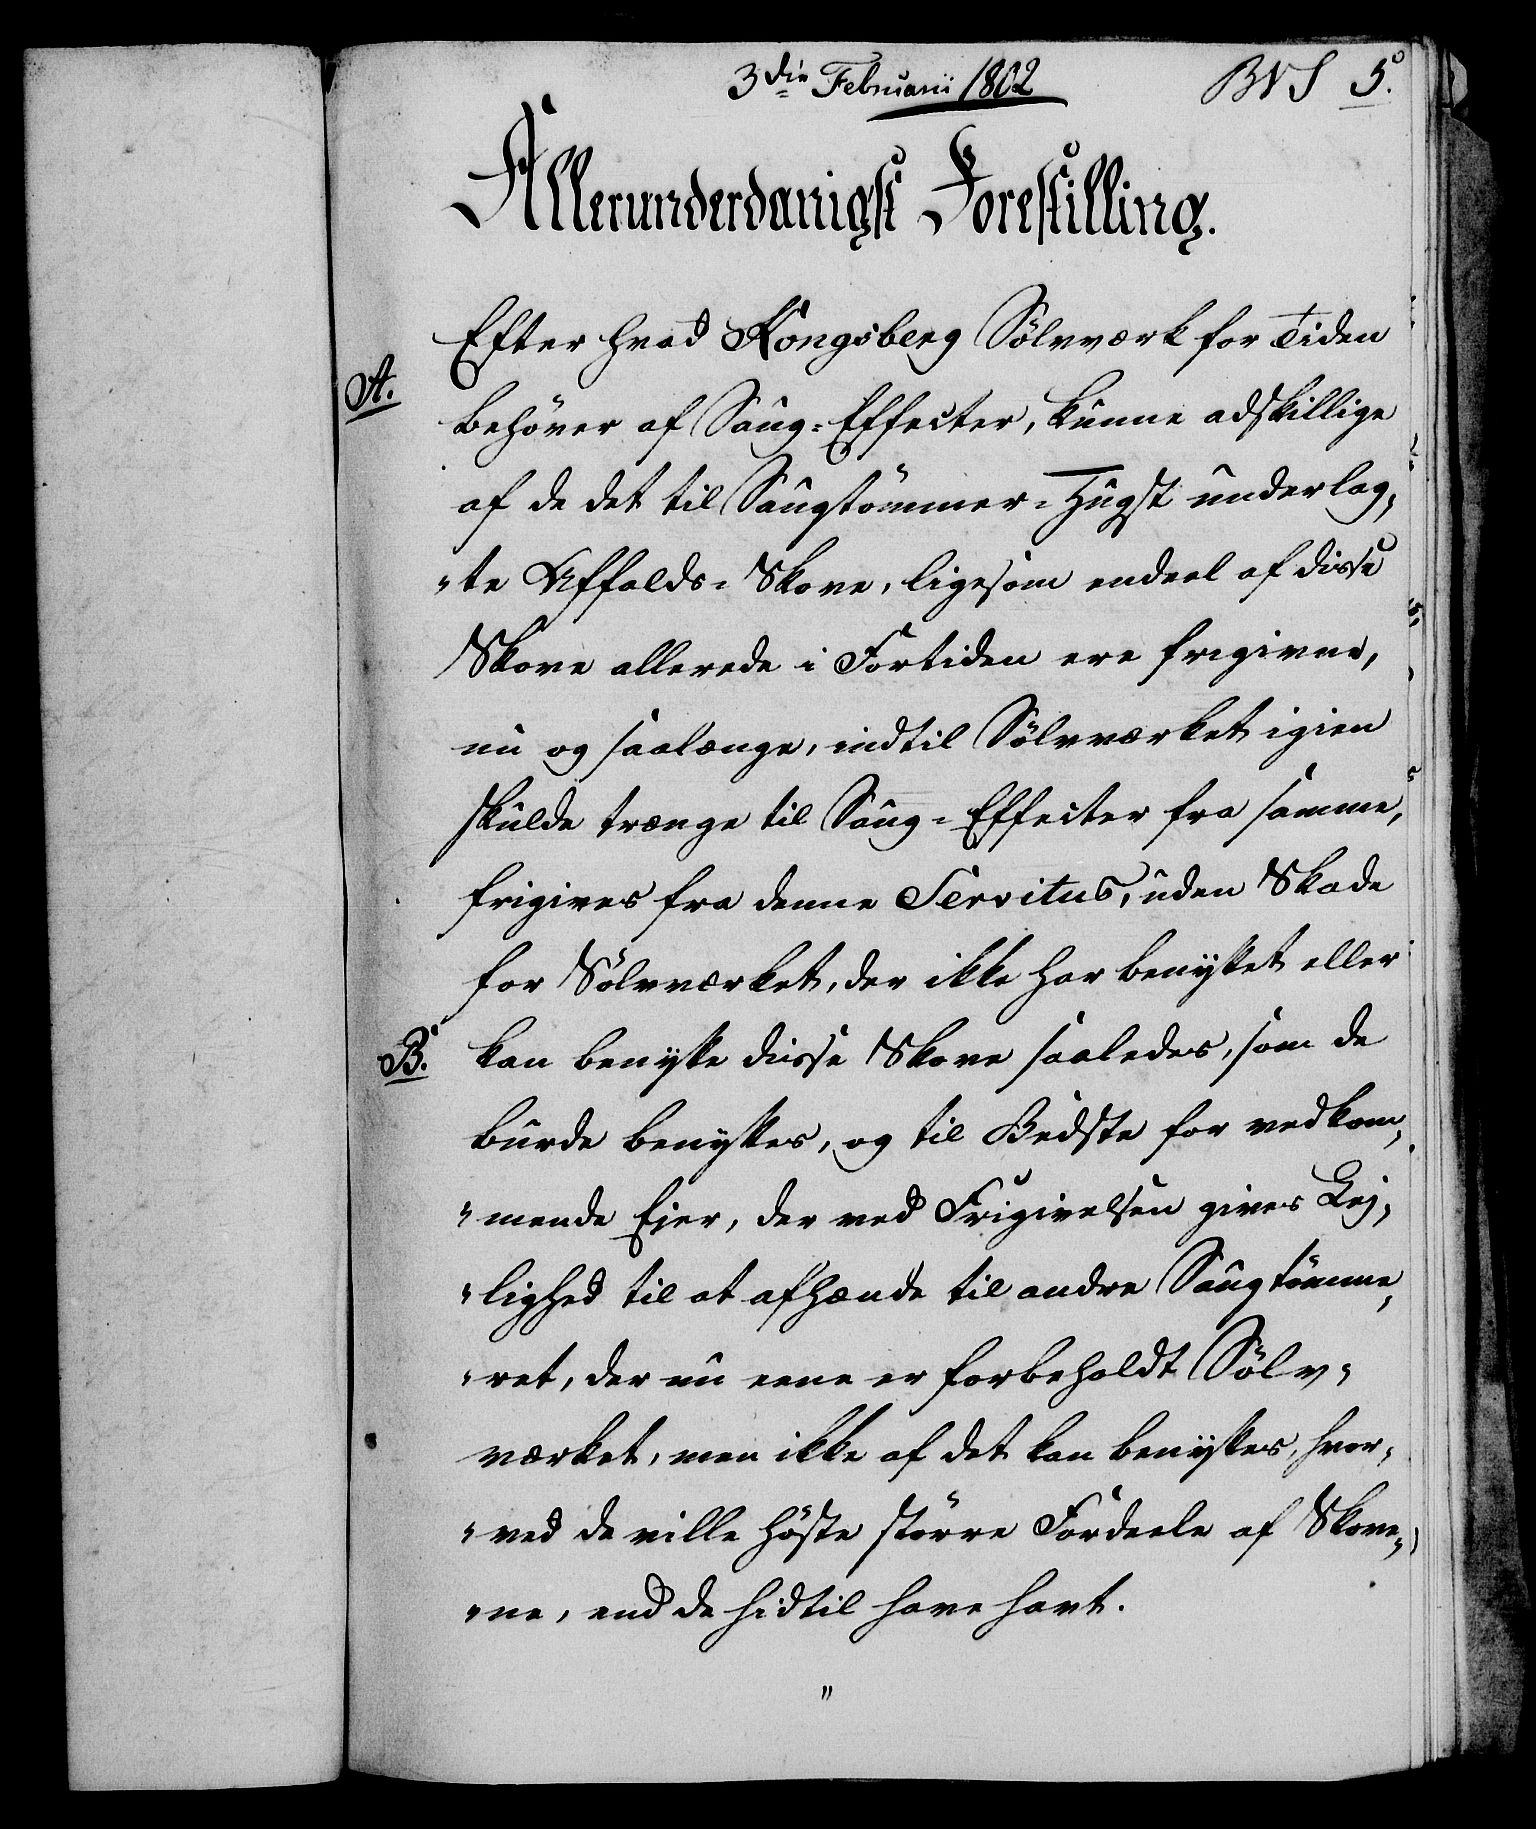 3die Februarii 1802
BNS 5.
Allerunderdanigst Forestilling.
Efter hvad Kongsberg Sölvværk for Tiden
A.
behöver af Saug-Effecter, kunne adskillige
af de det til Saugtömmer-Hugst underlag-
-te Affalds-Skove, ligesom endeel af disse
Skove allerede i Fortiden ere frigivne,
nu og saalænge, indtil Sölvværket igien
skulde trænge til Saug-Effecter fra samme,
frigives fra denne Servitus, uden Skade
for Sölvværket, der ikke har benyttet eller
B.
kan benytte disse Skove saaledes, som de
burde benyttes, og til Bedste for vedkom-
-mende Ejer, der ved Frigivelsen gives Lej-
-lighed til at afhænde til andre Saugtömme-
-ret, der nu eene er forbeholdt Sölv-
værket, men ikke af det kan benyttes, hvor-
-ved de ville höste större Fordeele af Skove-
-ne, end de hidtil have havt.
"